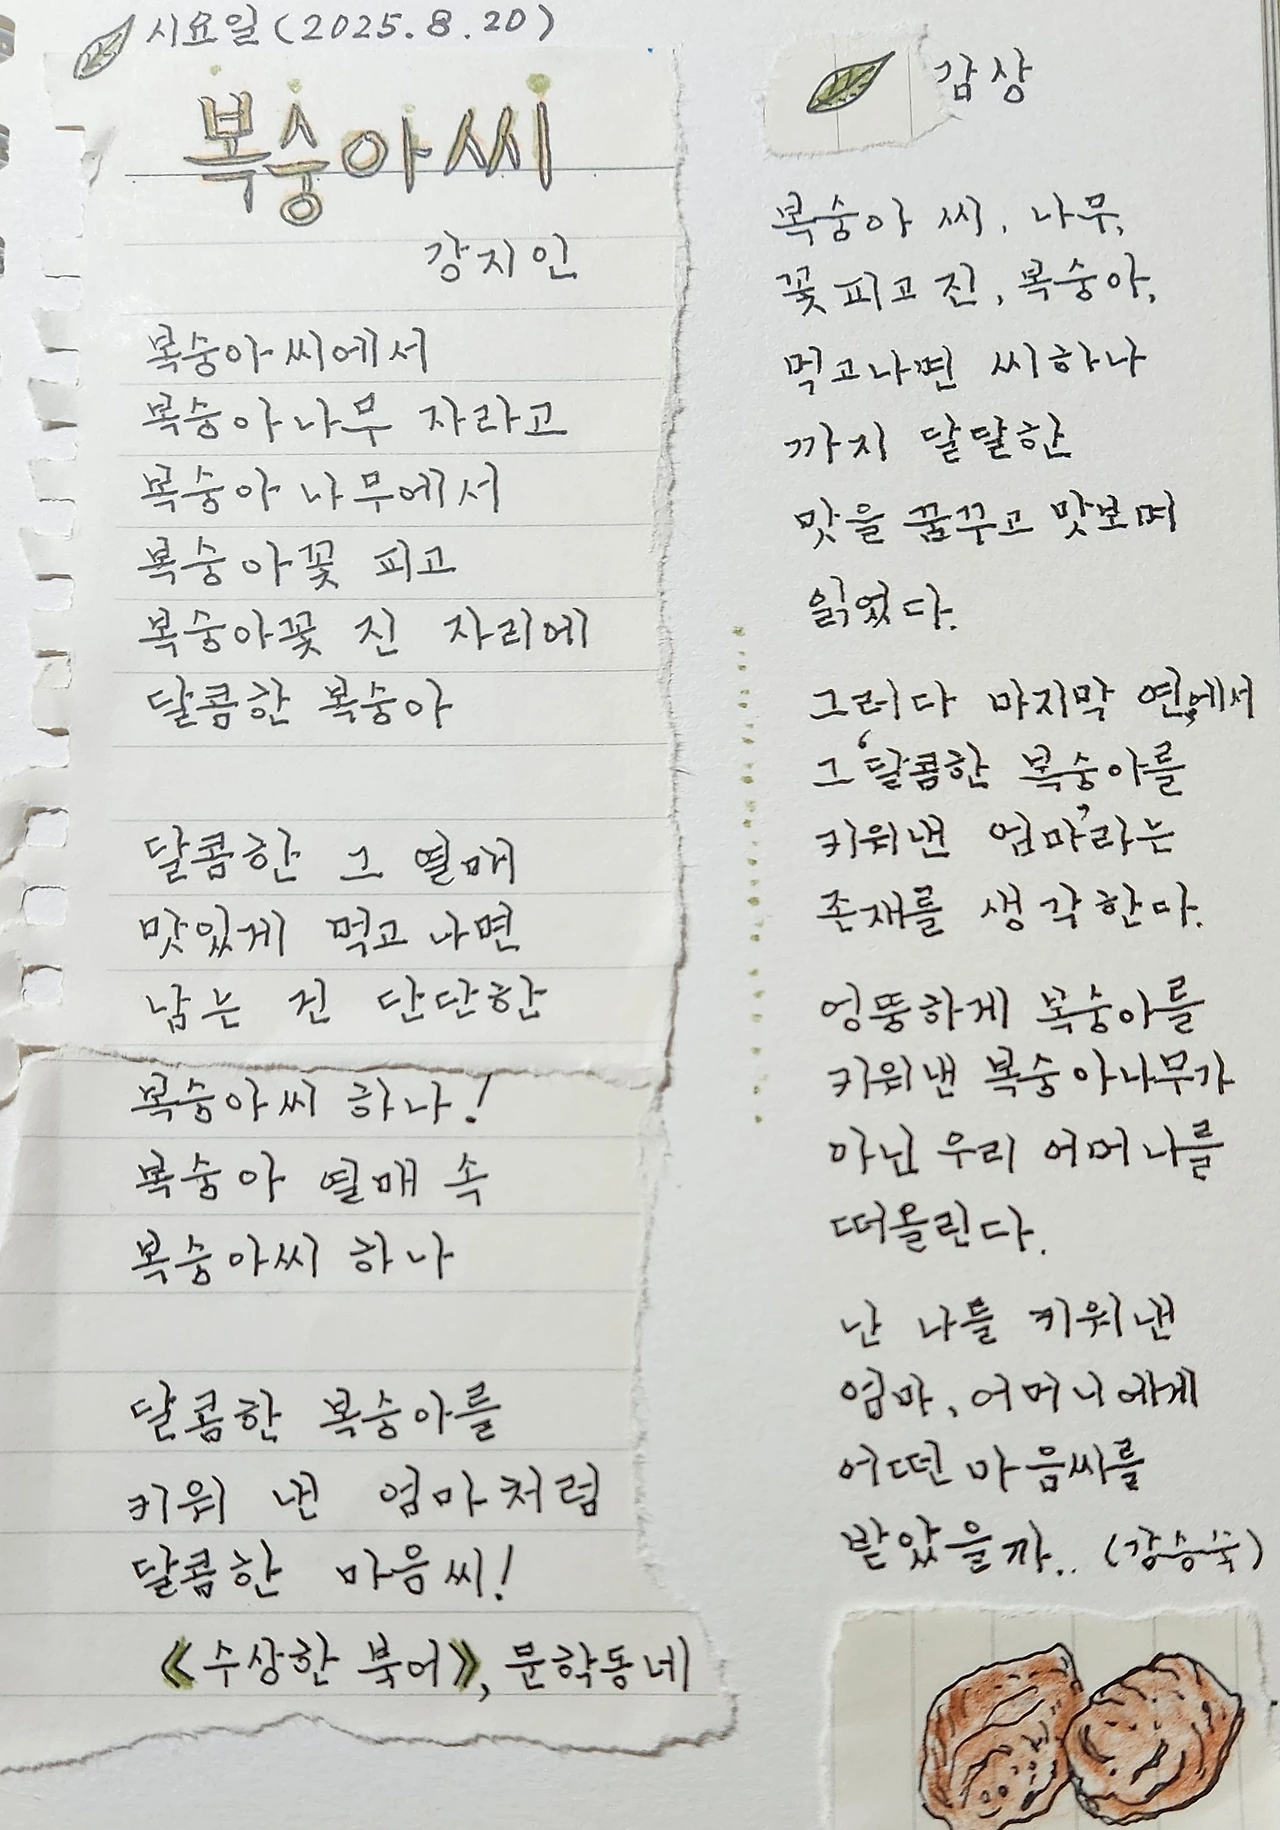 시요일(2025.8.20)
복숭아씨
강지인
복숭아씨에서
복숭아나무 자라고
복숭아나무에서
복숭아꽃 피고
복숭아꽃 진 자리에
달콤한 복숭아
달콤한 그 열매
맛있게 먹고 나면
남는 건 단단한
복숭아씨 하나!
복숭아 열매 속
복숭아씨 하나
달콤한 복숭아를
키워 낸 엄마처럼
달콤한 마음씨!
《수상한 북어》, 문학동네
감상
복숭아 씨, 나무,
꽃 피고 진, 복숭아,
먹고나면 씨하나
까지 달달한
맛을 꿈꾸고 맛보며
읽었다.
그러다 마지막 연에서
그 '달콤한 복숭아를
키워낸 엄마'라는
존재를 생각한다.
엉뚱하게 복숭아를
키워낸 복숭아나무가
아닌 우리 어머니를
떠올린다.
난 나를 키워낸
엄마, 어머니에게
어떤 마음씨를
받았을까.. (강승숙)